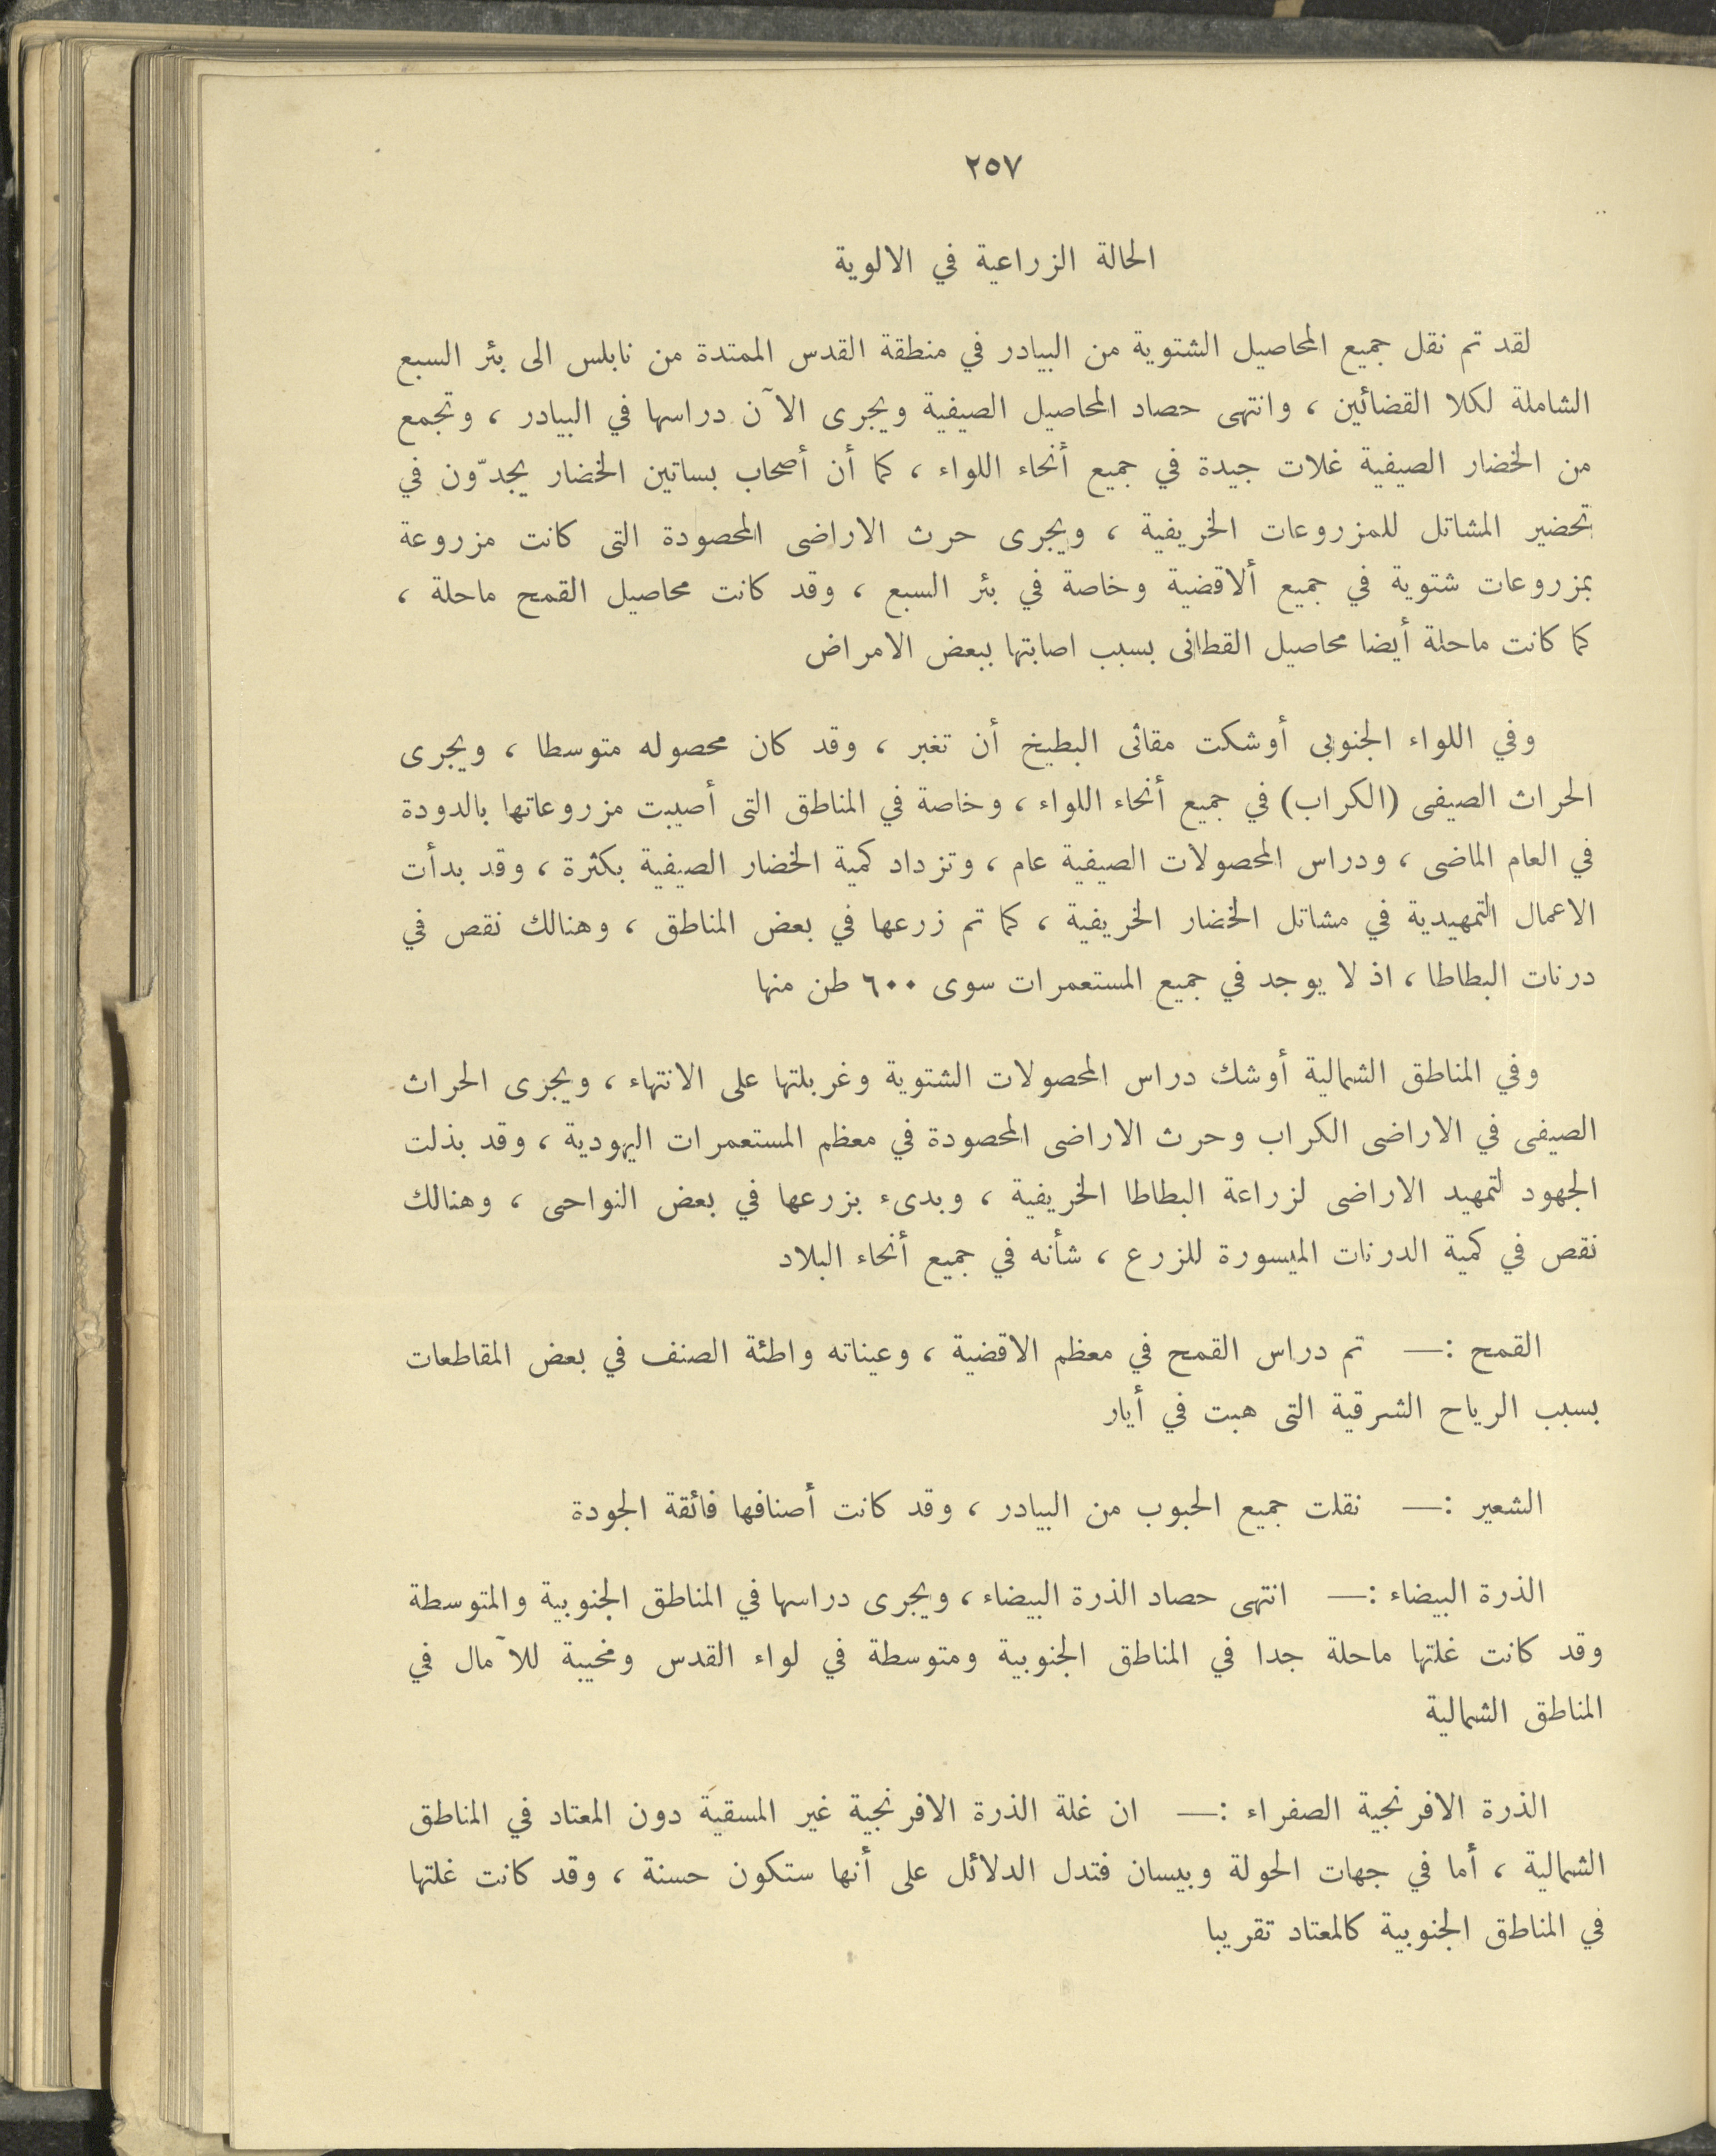 ٢٥٧
الحالة الزراعية في الالوية
لقد تم نقل جميع المحاصيل الشتوية من البيادر في منطقة القدس الممتدة من نابلس الى بئر السبع
الشاملة لكلا القضائين ، وانتهى حصاد المحاصيل الصيفية ويجرى الآن دراسها في البيادر ، وتجمع
من الخضار الصيفية غلات جيدة في جميع أنحاء اللواء ، كما أن أصحاب بساتين الخضار يجدّون في
تحضير المشاتل للمزروعات الخريفية ، ويجرى حرث الاراضى المحصودة التى كانت مزروعة
بمزروعات شتوية في جميع ألاقضية وخاصة في بئر السبع ، وقد كانت محاصيل القمح ماحلة ،
كما كانت ماحلة أيضا محاصيل القطانى بسبب اصابتها ببعض الامراض
وفي اللواء الجنوبى أوشكت مقاثى البطيخ أن تغبر ، وقد كان محصوله متوسطا ، ويجرى
الحراث الصيفى (الكراب) في جميع أنحاء اللواء ، وخاصة في المناطق التى أصيبت مزروعاتها بالدودة
في العام الماضى ، ودراس المحصولات الصيفية عام ، وتزداد كمية الخضار الصيفية بكثرة ، وقد بدأت
الاعمال التمهيدية في مشاتل الخضار الخريفية ، كما تم زرعها في بعض المناطق ، وهنالك نقص في
درنات البطاطا ، اذ لا يوجد في جميع المستعمرات سوى ٦٠٠ طن منها
وفي المناطق الشمالية أوشك دراس المحصولات الشتوية وغربلتها على الانتهاء ، ويجرى الحراث
الصيفى في الاراضى الكراب وحرث الاراضى المحصودة في معظم المستعمرات اليهودية ، وقد بذلت
الجهود لتمهيد الاراضى لزراعة البطاطا الخريفية ، وبدىء بزرعها في بعض النواحى ، وهنالك
نقص في كمية الدرنات الميسورة للزرع ، شأنه في جميع أنحاء البلاد
القمح :— تم دراس القمح في معظم الاقضية ، وعيناته واطئة الصنف في بعض المقاطعات
بسبب الرياح الشرقية التى هبت في أيار
الشعير :— نقلت جميع الحبوب من البيادر ، وقد كانت أصنافها فائقة الجودة
الذرة البيضاء :— انتهى حصاد الذرة البيضاء ، ويجرى دراسها في المناطق الجنوبية والمتوسطة
وقد كانت غلتها ماحلة جدا في المناطق الجنوبية ومتوسطة في لواء القدس ومخيبة للآمال في
المناطق الشمالية
الذرة الافرنجية الصفراء :— ان غلة الذرة الافرنجية غير المسقية دون المعتاد في المناطق
الشمالية ، أما في جهات الحولة وبيسان فتدل الدلائل على أنها ستكون حسنة ، وقد كانت غلتها
في المناطق الجنوبية كالمعتاد تقريبا